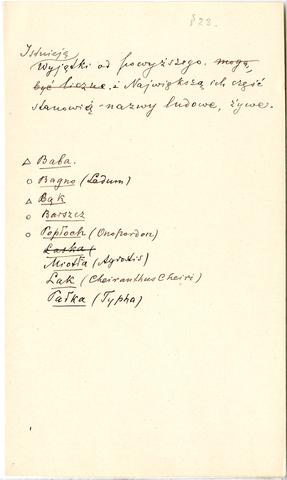 823.
Istnieją
Wyjątki od powyższego. mogą
być liczne. i Największą ich część
stanowią - nazwy ludowe, żywe.
△ Baba.
○ Bagno (Ledum)
△ Bąk
○ Barszcz
○ Popłoch (Onopordon)
Laska (
Miotła (Agrostis)
Lak (Cheiranthus Cheiri)
Pałka (Typha)